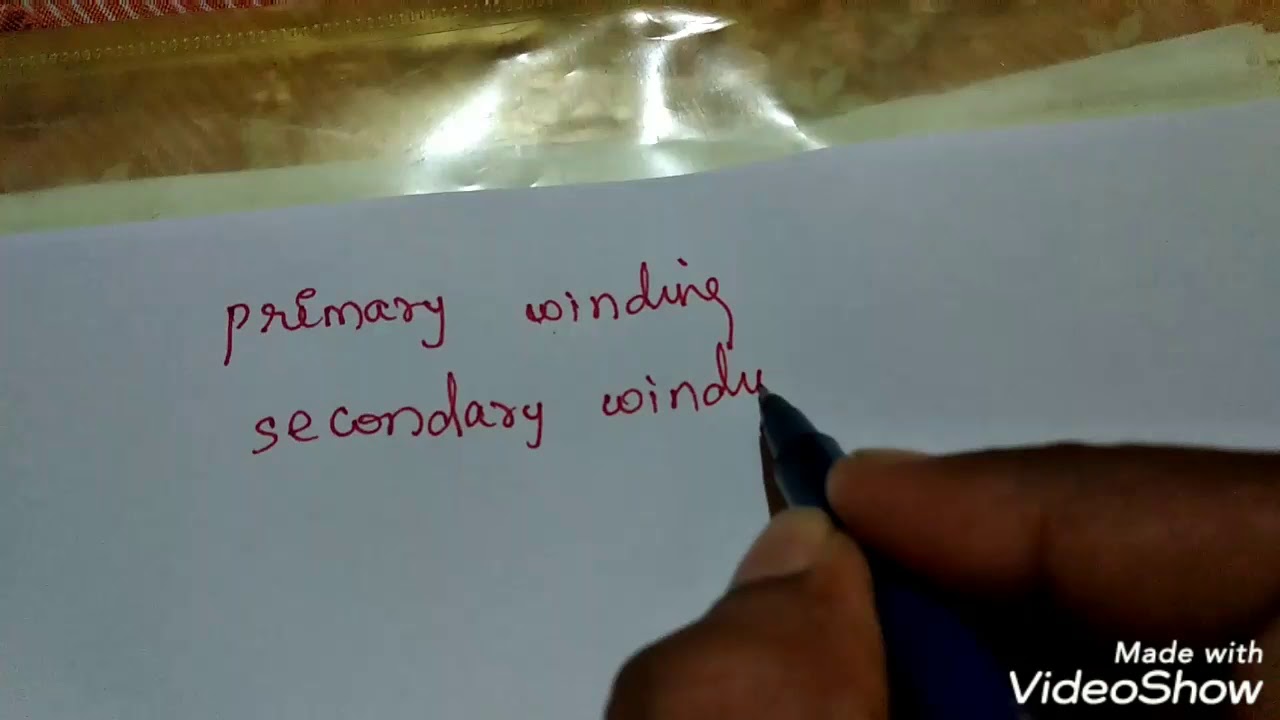 primary winding
secondary windi
Made with
VideoShow